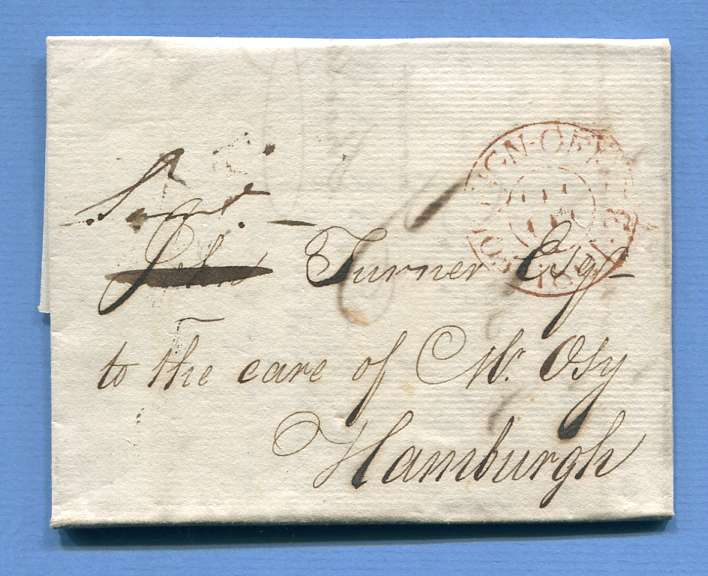 Saml
John Turner Esqr
to the care of Mr. Osy
Hamburgh